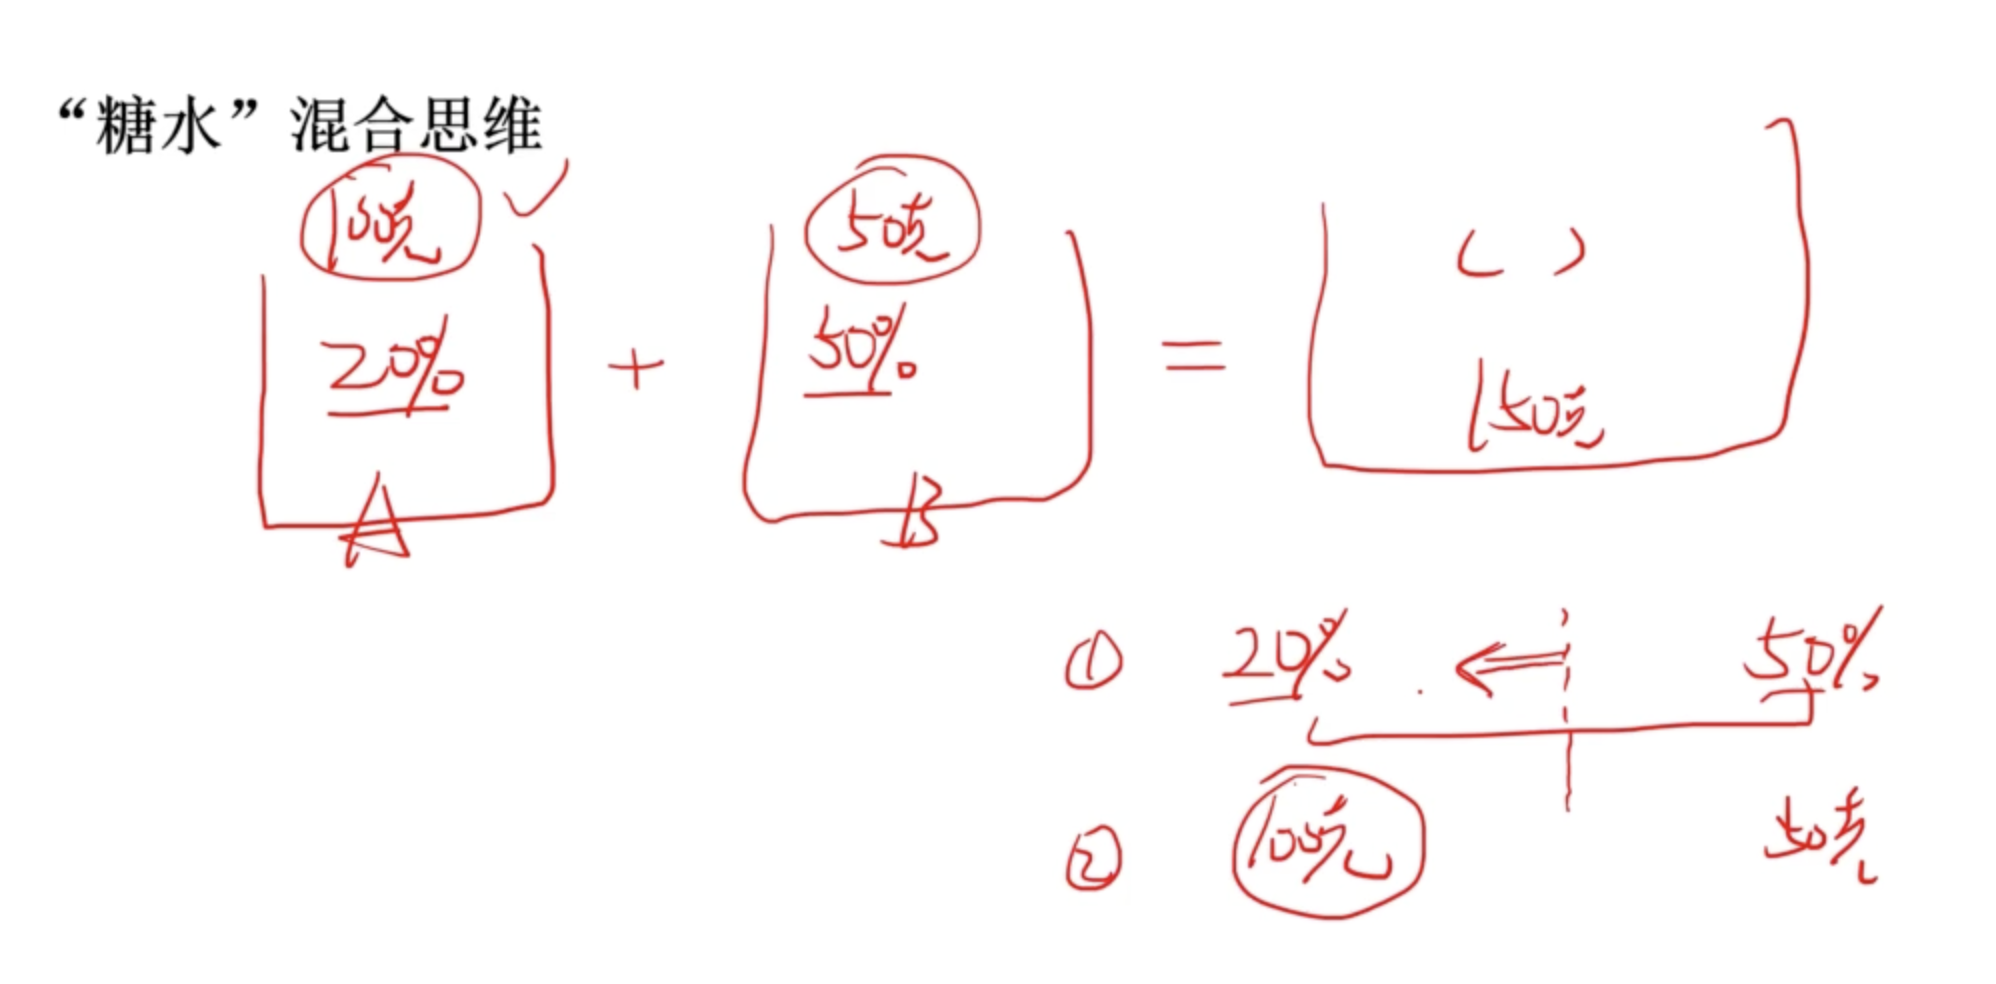 “糖水”混合思维
100克 50克
20% + 50% = ( )
150克
A B
① 20% 50%
② 100克 50克